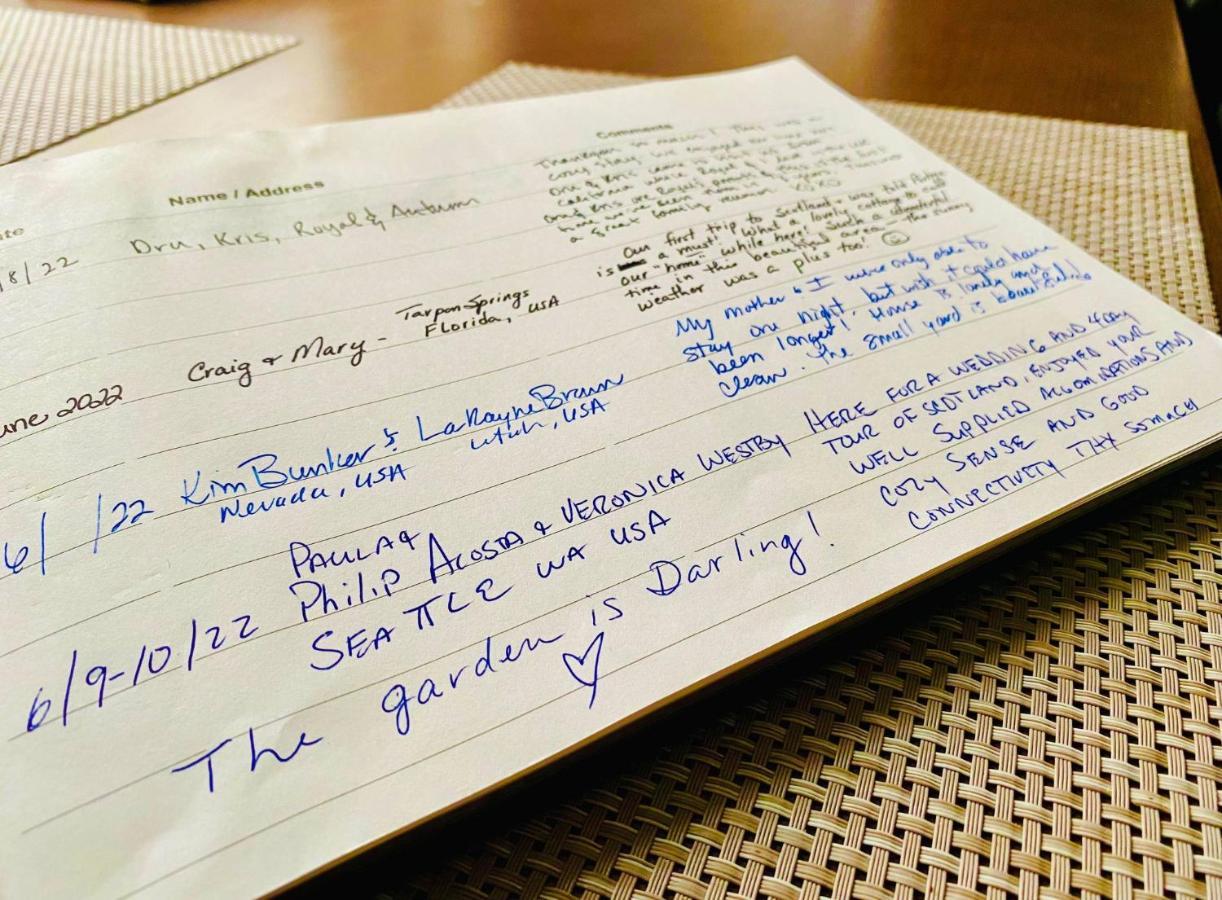 Name / Address
Comments
/8/22
Dru, Kris, Royal & Autum
Thankyou so much! This was a
cozy stay. We enjoyed
a great family reunion. XOXO
une 2022
Craig & Mary -
Tarpon Springs
Florida, USA
Our first trip to Scotland & was told
is a must! What a lovely cottage to call
our "home" while here! Such a wonderful
time in this beautiful area - the sunny
weather was a plus too!
6/ /22
Kim Bunker & LaRayne Brown
Nevada, USA
Utah, USA
My mother & I were only able to
stay one night, but wish I could have
been longer! House is lovely and
clean. The small yard is beautiful!
6/9-10/22
PAULA &
Philip ACOSTA & VERONICA WESTBY
SEATTLE WA USA
HERE FOR A WEDDING AND 4 DAY
TOUR OF SCOTLAND, ENJOYED YOUR
WELL SUPPLIED ACCOMINATIONS AND
COZY SENSE AND GOOD
CONNECTIVITY THX SO MACH
The garden is Darling!